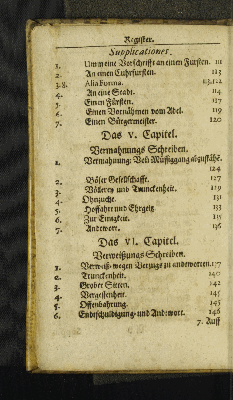 Register.
Supplicationes.
1. Umm eine Vorschrifft an einen Fürsten. 111
2. An einen Cuhrfursten. 113
3.8. Alia Forma. 113,112
4. An eine Stadt. 114
5. Einen Fürsten. 117
6. Einen Vornähmen vom Adel. 119
7. Einen Bürgermeister. 120
Das V. Capitel.
Vermahnungs Schreiben.
1. Vermahnung: Von Müssiggang abzustehē.
124
2. Böser Gesellschafft. 127
3. Völlerey und Trunckenheit. 129
4. Ohnzucht. 131
5. Hoffahrt und Ehrgeitz. 133
6. Zur Einigkeit. 135
7. Andtwort. 136
Das VI. Capitel.
Verweißungs Schreiben.
1. Verweiß wegen Verzugs zu andtworten. 137
2. Trunckenheit. 140
3. Grober Sitten. 142
4. Vergessenheit. 145
5. Offenbahrung. 145
6. Endtschuldigung und Andtwort. 146
7. Auff